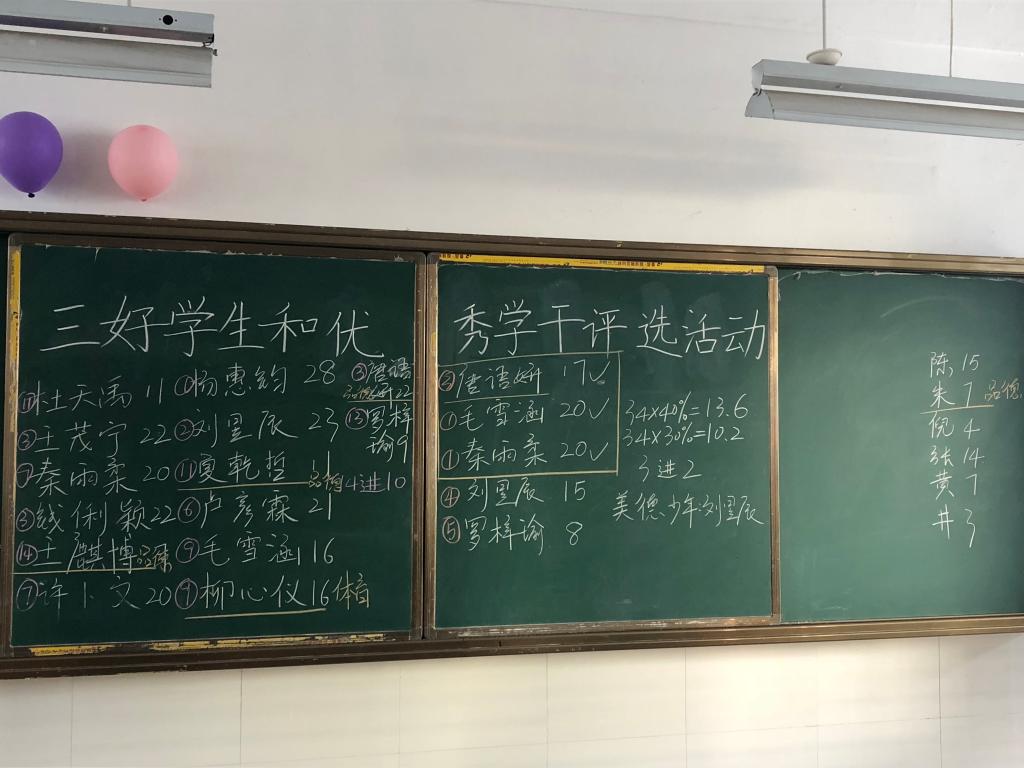 三好学生和优
秀学干评选活动
⑪杜天禹 11
③王茂宁 22
⑦秦雨柔 20
③钱俐颖 22
⑭王麒博 品德
⑦许卜文 20
①杨惠钧 28
②刘昱辰 23
⑪夏乾哲 11 品德
⑥卢彦霖 21
⑨毛雪涵 16
⑨柳心仪 16 体育
③唐语妍 22
品德
⑬罗梓瑜 9
14进10
②唐语妍 17✓
①毛雪涵 20✓
①秦雨柔 20✓
④刘昱辰 15
⑤罗梓瑜 8
34×40%=13.6
34×30%=10.2
3进2
美德少年刘昱辰
陈 15
朱 7 品德
倪 4
张 14
黄 7
井 3